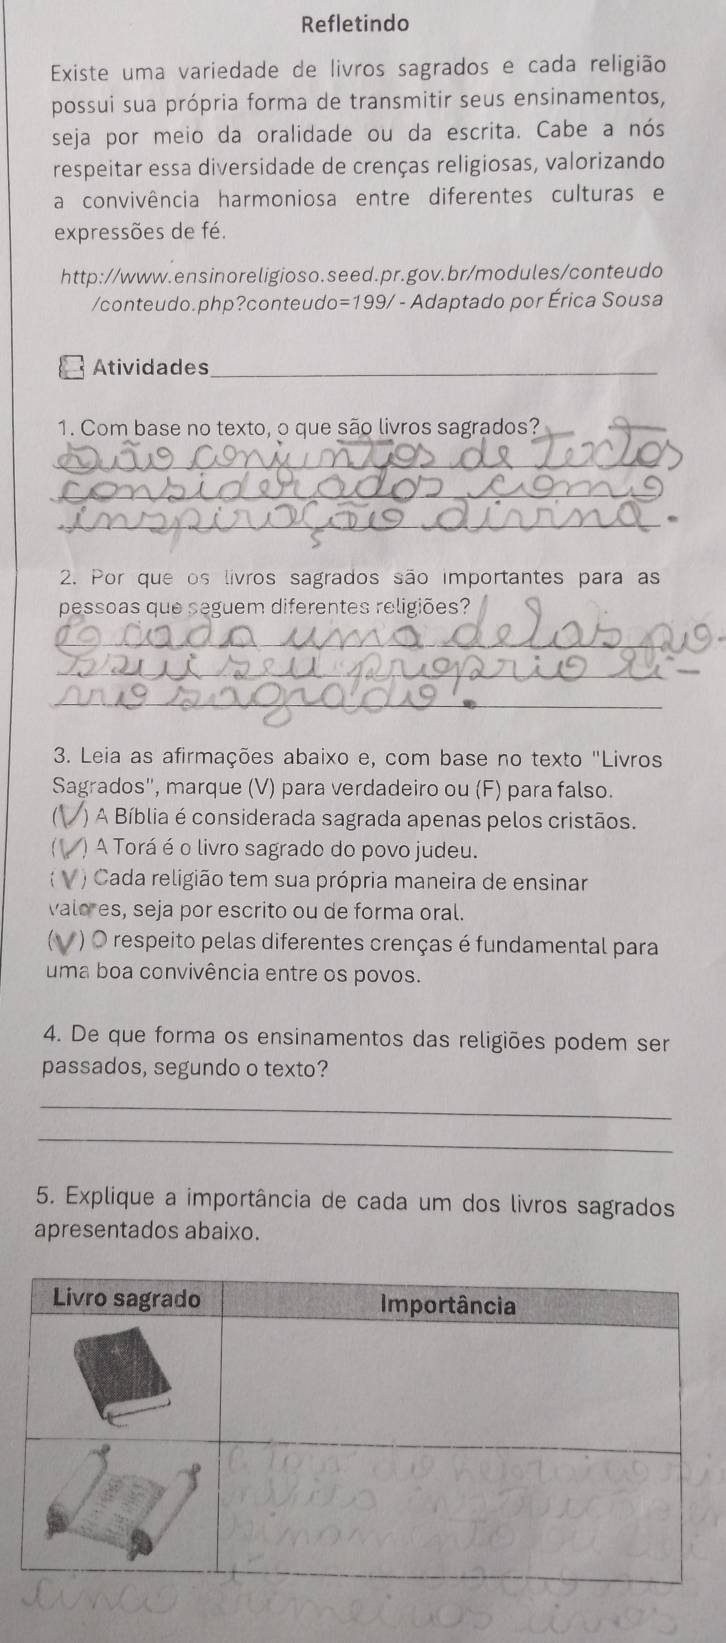 Refletindo
Existe uma variedade de livros sagrados e cada religião
possui sua própria forma de transmitir seus ensinamentos,
seja por meio da oralidade ou da escrita. Cabe a nós
respeitar essa diversidade de crenças religiosas, valorizando
a convivência harmoniosa entre diferentes culturas e
expressões de fé.
http://www.ensinoreligioso.seed.pr.gov.br/modules/conteudo
/conteudo.php?conteudo=199/ - Adaptado por Érica Sousa
Atividades
1. Com base no texto, o que são livros sagrados?
São conjuntos de textos
considerados como
inspiração divina.
2. Por que os livros sagrados são importantes para as
pessoas que seguem diferentes religiões?
cada uma delas po-
ssui seu proprio li-
vro sagrado.
3. Leia as afirmações abaixo e, com base no texto "Livros
Sagrados", marque (V) para verdadeiro ou (F) para falso.
(V) A Bíblia é considerada sagrada apenas pelos cristãos.
(V) A Torá é o livro sagrado do povo judeu.
(V) Cada religião tem sua própria maneira de ensinar
valores, seja por escrito ou de forma oral.
(V) O respeito pelas diferentes crenças é fundamental para
uma boa convivência entre os povos.
4. De que forma os ensinamentos das religiões podem ser
passados, segundo o texto?
5. Explique a importância de cada um dos livros sagrados
apresentados abaixo.
Livro sagrado Importância